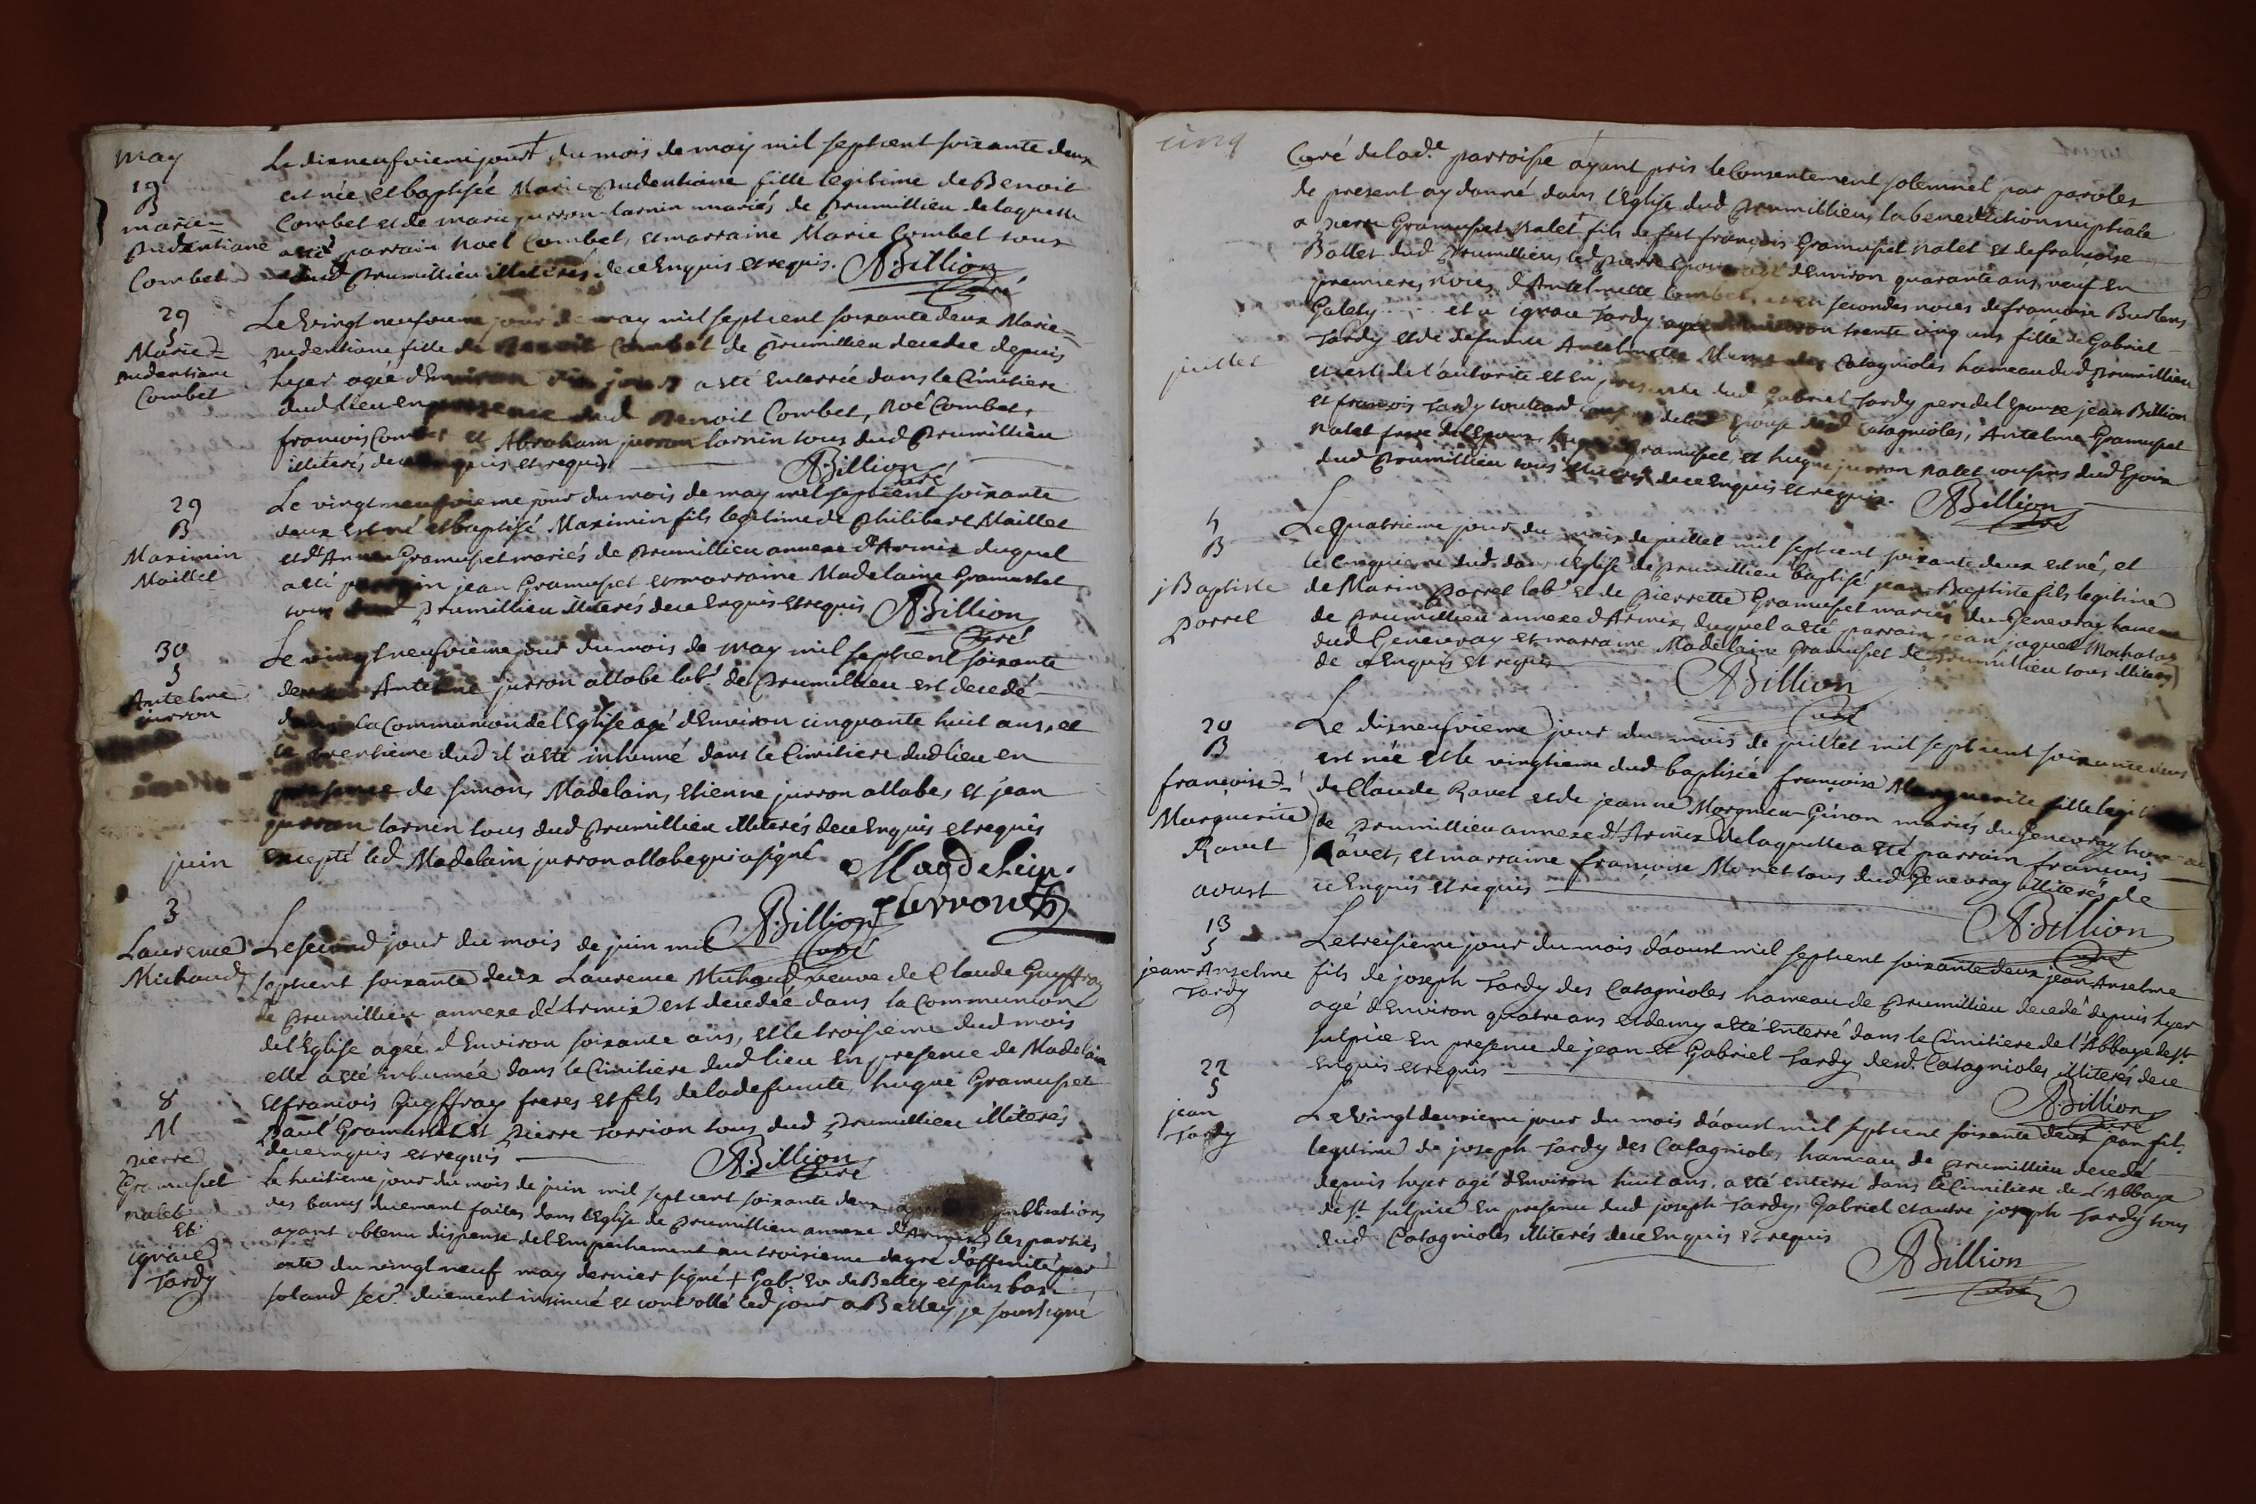 may
19
B
marie-
prudentiane
Combet
Le dixneufvieme jour du mois de may mil septcent soixante deux
est née et baptisée Marie prudentiane fille legitime de Benoit
Combet et de marie jurron-larnin mariés de prumillieu de laquelle
a eté parrain Noel Combet, et marraine Marie Combet tous
dud prumillieu illiterés de ce Enquis et requis. ABillion
Curé
29
S
Marie-
prudentiane
Combet
Le vingt neufvieme jour de may mil septcent soixante deux Marie-
prudentiane fille de Benoit Combet de prumillieu decedée depuis
hyer agée d'Environ dix jours a eté Enterrée dans le Cimitiere
dud lieu en presence dud Benoit Combet, Noé Combet,
francois Combet et Abraham jurron larnin tous dud prumillieu
illiterés de ce enquis et requis ABillion
Curé
29
B
Maximin
Maillet
Le vingt neufvieme jour du mois de may mil septcent soixante
deux Est né et baptisé Maximin fils legitime de philibert Maillet
et d'Anne Gramuset mariés de prumillieu annexe d'Armix duquel
a eté parrain jean Gramuset et marraine Madelaine Gramuset
tous dud prumillieu illiterés de ce Enquis et requis ABillion
Curé
30
S
Antelme
jurron
Le vingt neufvième jour du mois de may mil septcent soixante
deux Antelme jurron allobe labr de prumillieu est decedé
dans la Communion de l'Eglise agé d'Environ cinquante huit ans, et
le trentieme dud il a eté inhumé dans le Cimitiere dud lieu en
presence de simon, Madelain, Etienne jurron allabe, et jean
jurron larnin tous dud prumillieu illiterés de ce Enquis et requis
Excepté led Madelain jurron allobe qui a signé Magdelein
juin
ABillion
Curé
3
Laurence
Michaud
Le second jour du mois de juin mil
septcent soixante deux Laurence Michaud veuve de Claude Guyffray
de prumillieu annexe d'Armix est decedée dans la Communion
de l'Eglise agée d'Environ soixante ans, et le troisieme dud mois
elle a eté inhumée dans le Cimitiere dud lieu En presence de Madelain
Et francois Guyffray freres et fils de la defunte, hugue Gramuset
paul Gramuset et pierre tarrion tous dud prumillieu illiterés
de ce enquis et requis ABillion
Curé
8
M
pierre
Gramuset
nalet
Et
ignace
Tardy
Le huitieme jour du mois de juin mil septcent soixante deux publications
des bancs duement faites dans l'Eglise de prumillieu annexe d'Armix les parties
ayant obtenu dispense de l'Empechement au troisieme degré d'affinité par
acte du vingt neuf may dernier signé + Gab. Ev de Belley et plus bas
soland secr. duement insinué et controllé led jour a Belley je soussigné
cinq
Curé de lade parroisse ayant pris le Consentement solemnel par paroles
de present ay donné dans l'Eglise dud prumillieu la benediction nuptiale
a pierre Gramuset Nalet fils de feu françois Gramuset nalet et de francoise
Ballet dud prumillieu led pierre Epoux agé d'Environ quarante ans, veuf en
premieres noces d'Antelmette Combet, et en secondes noces de francoise Burlens
Galety et a ignace Tardy agée d'Environ trente cinq ans fille de Gabriel
Tardy et de defunte Antelmette des Catagnioles hameau dud prumillieu
juillet
de l'autorité et en presence dud Gabriel Tardy pere de l'Epouse jean Billion
et francois Tardy de lad Epouse dud Catagnioles, Antelme Gramuset
Nalet frere de l'Epoux, Gramuset, et hugue jurron nalet cousins dud Epoux
dud prumillieu tous illiterés de ce Enquis et requis. ABillion
Curé
4
B
j Baptiste
porrel
Le quatrieme jour du mois de juillet mil septcent soixante deux est né, et
le cinquieme dud dans l'Eglise de prumillieu baptisé jean-Baptiste fils legitime
de Marin porrel labr et de pierrette Gramuset mariés du Genevray hameau
de prumillieu annexe d'Armix, duquel a eté parrain jean jaque Mochalaz
dud Genevray et marraine Madelaine Gramuset de prumillieu tous illiterés
de ce Enquis et requis ABillion
Curé
20
B
françoise-
Marguerite
Ravet
Le dixneufvieme jour du mois de juillet mil septcent soixante deux
est née et le vingtieme dud baptisée françoise Marguerite fille legit
de Claude Ravet et de jeanne Morgnieu-Ginon mariés du Genevray hameau
de prumillieu annexe d'Armix de laquelle a eté parrain francois
Ravet, et marraine françoise Monet tous dud Genevray illiterés de
ce Enquis et requis ABillion
Curé
aoust
13
S
jean-Anselme
Tardy
Le treisieme jour du mois d'aoust mil septcent soixante deux jean Anselme
fils de joseph Tardy des Catagnioles hameau de prumillieu decedé depuis hyer
agé d'Environ quatre ans et demy a eté Enterré dans le Cimitiere de l'Abbaye de st
sulpice En presence de jean et Gabriel Tardy dud. Catagnioles illiterés de ce
Enquis et requis ABillion
Curé
22
S
jean
Tardy
Le vingt deuxieme jour du mois d'aoust mil septcent soixante deux jean fils
legitime de joseph Tardy des Catagnioles hameau de prumillieu decedé
depuis hyer agé d'Environ huit ans, a eté enterré dans le Cimitiere de l'Abbaye
de st sulpice En presence dud joseph Tardy, Gabriel et autre joseph Tardy tous
dud Catagnioles illiterés de ce Enquis et requis
ABillion
Curé